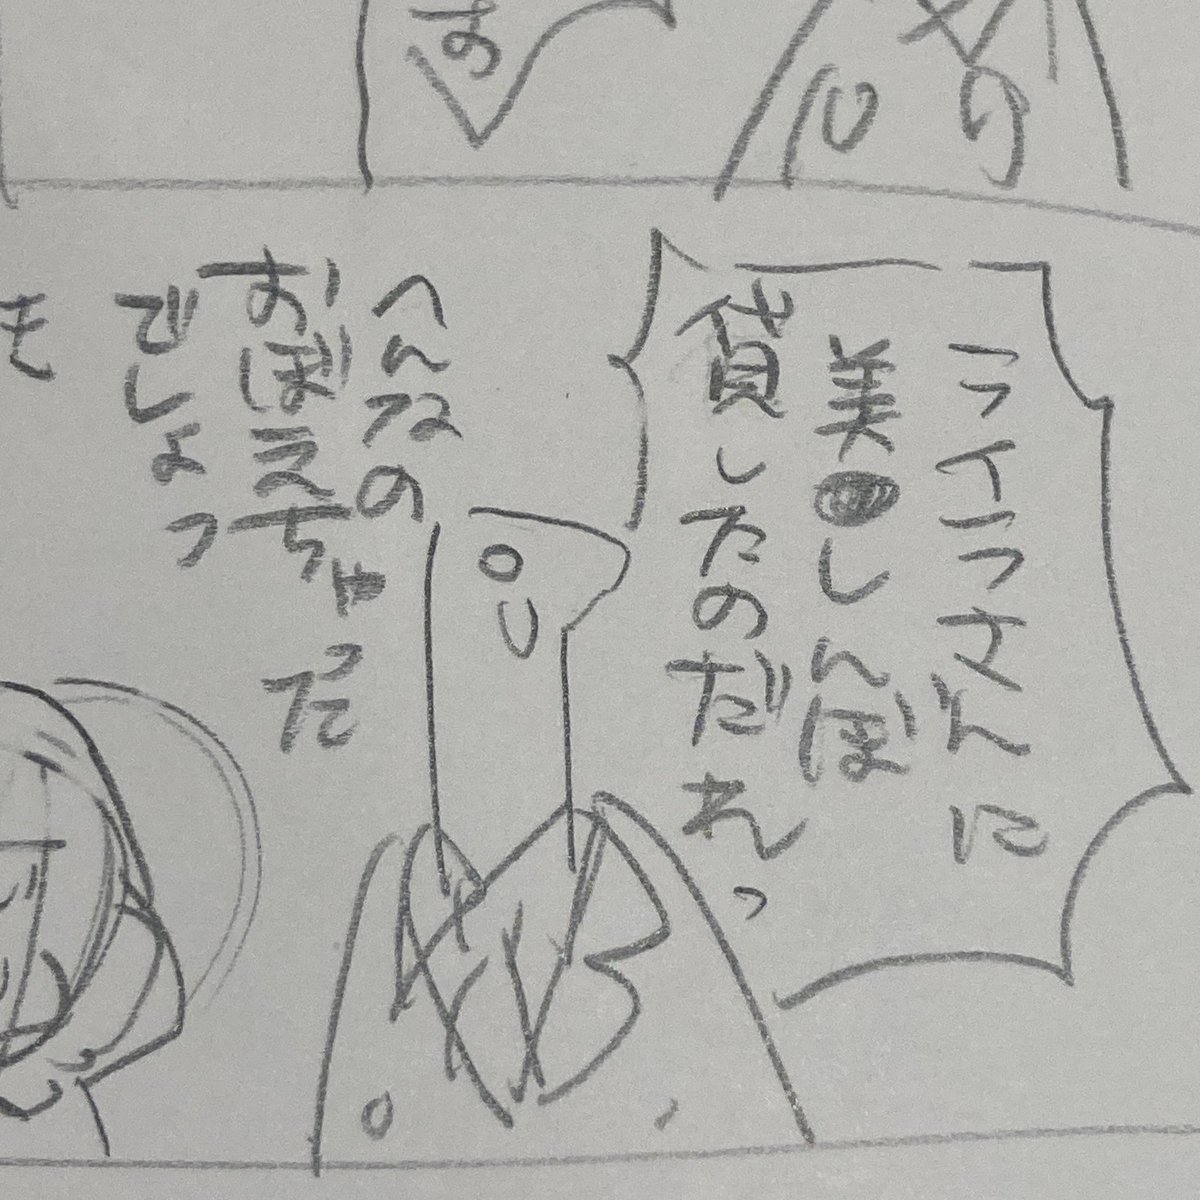 ライラさんに
美●しんぼ
貸したのだれっ
へんなの
おぼえちゃった
でしょっ
も
す